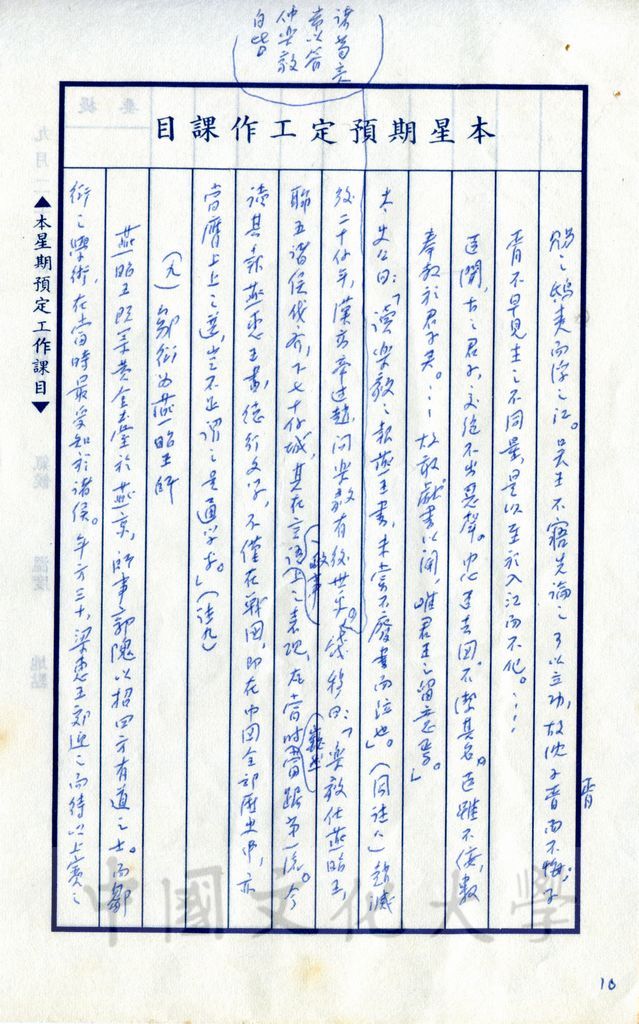 諸葛亮
嘗以管
仲樂毅
自比
本星期預定工作課目
賜之鴟夷而浮之江。吳王不寤先論之可以立功，故沈子胥而不悔；子
胥
胥不早見主之不同量，是以至於入江而不化。……
臣聞，古之君子，交絕不出惡聲。忠臣去國，不潔其名。臣雖不佞，數
奉教於君子矣。……故敢獻書以聞，唯君王之留意焉。」
太史公曰：「讀樂毅之報燕王書，未嘗不廢書而泣也。」（同註八）趙滅
後二十餘年，漢高帝過趙，問樂毅有後世乎。錢穆曰：「樂毅仕燕昭王，
聯五諸侯伐齊，下七十餘城，其在言語上之表現，在當時當踞第一流。今
政事
讀其報燕惠王書，德行文學，不僅在戰國，即在中國全部歷史中，亦
當膺上上之選，豈不正謂之是通學乎。」（註九）
（九）鄒衍為燕昭王師
燕昭王既築黃金臺於燕京，師事郭隗以招四方有道之士。而鄒
衍之學術，在當時最受知於諸侯。年方三十，梁惠王郊迎之而待以上賓之
▲本星期預定工作課目▼
中國文化大學
10